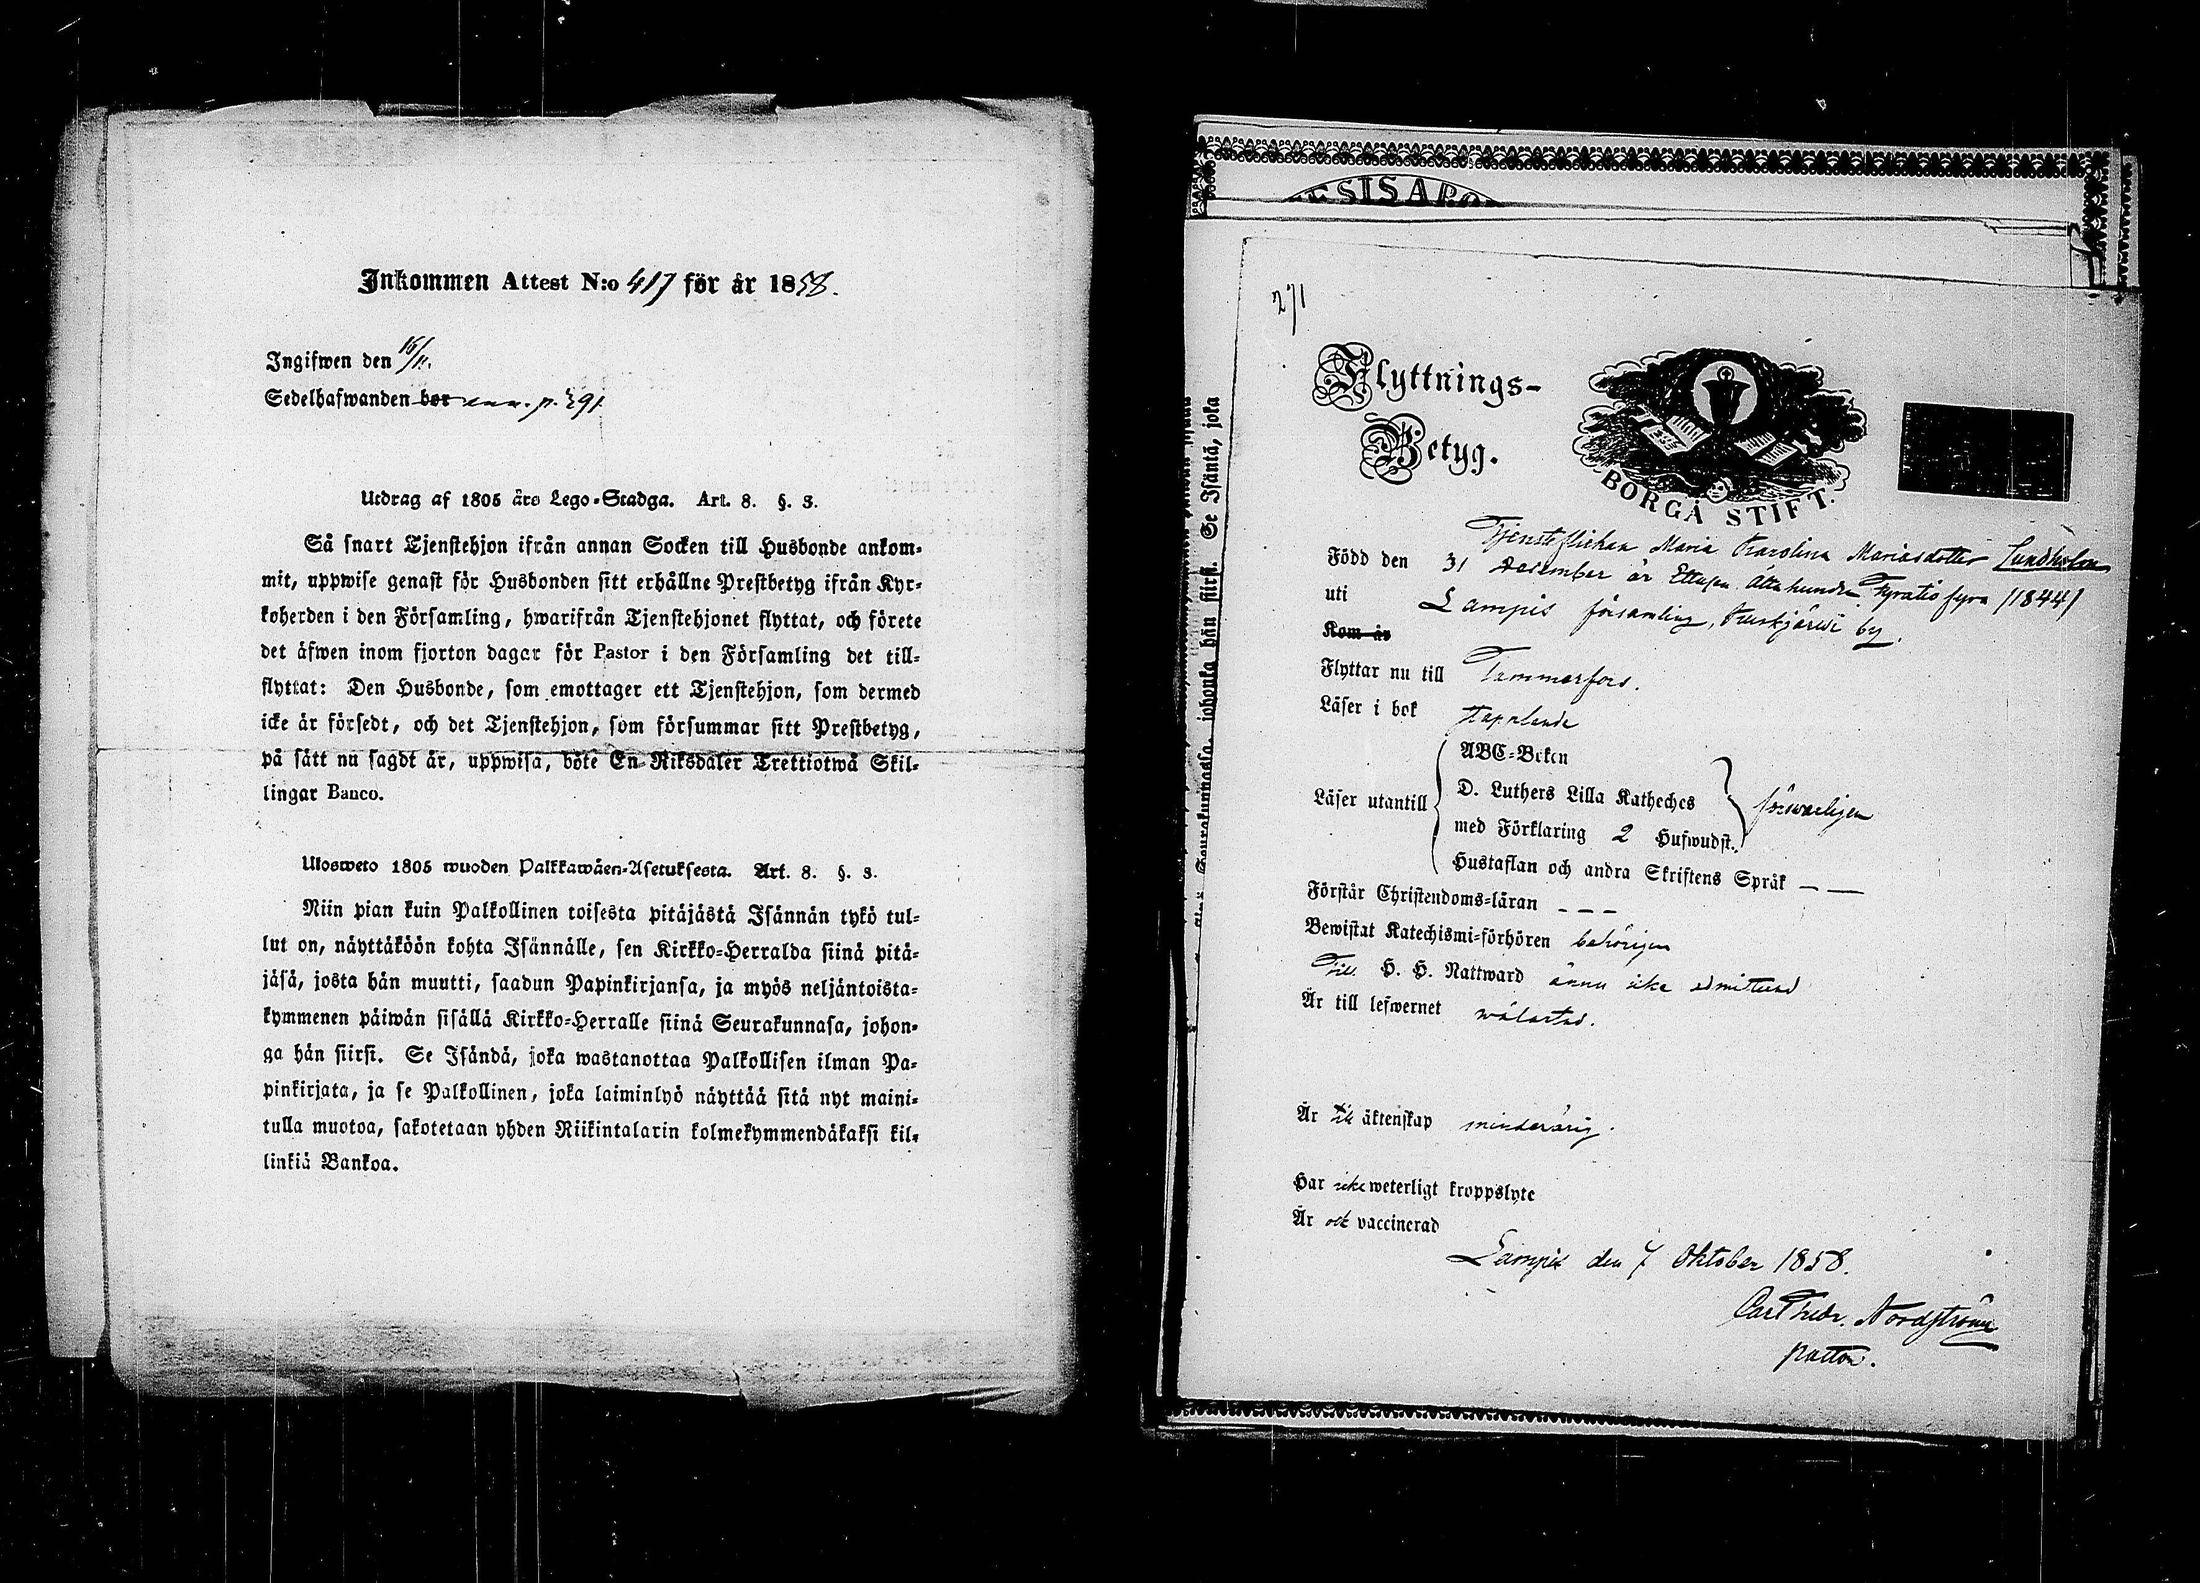 Inkommen Attest N:o 417 för år 1858.
Ingifwen den 16/11.
Sedelhafwanden bor p. 391
Utdrag af 1805 års Lego-Stadga. Art. 8. §. 3.
Så snart Tjenstehjon ifrån annan Socken till Husbonde ankom-
mit, uppwise genast för Husbonden sitt erhållne Prestbetyg ifrån Kyr-
koherden i den Församling, hwarifrån Tjenstehjonet flyttat, och förete
det äfwen inom fjorton dagar för Pastor i den Församling det till-
flyttat: Den Husbonde, som emottager ett Tjenstehjon, som dermed
icke är försedt, och det Tjenstehjon, som försummar sitt Prestbetyg,
på sätt nu sagdt är, uppwisa, böte En Riksdaler Trettiotwå Skil-
lingar Banco.
Ulosweto 1805 wuoden Palkkawäen-Asetuksesta. Art. 8. §. 3.
Niin pian kuin Palkollinen toisesta pitäjästä Isännän tykö tul-
lut on, näyttäköön kohta Isännälle, sen Kirkko-Herralda siinä pitä-
jäsä, josta hän muutti, saadun Papinkirjansa, ja myös neljäntoista-
kymmenen päiwän sisällä Kirkko-Herralle siinä Seurakunnasa, johon-
ga hän siirsi. Se Isändä, joka wastanottaa Palkollisen ilman Pa-
pinkirjata, ja se Palkollinen, joka laiminlyö näyttää sitä nyt maini-
tulla muotoa, sakotetaan yhden Riikintalarin kolmekymmendäkaksi kil-
linkiä Bankoa.
SISARO
Seurakunnassa, johonka hän siirsi. Se Isäntä, joka
271
Flyttnings-
Betyg.
BORGÅ STIFT.
Tjensteflickan Maria Karolina Mariasdotter Lundholm
Född den 31 December år Ettusen Åttahundra Fyratiofyra /1844/
uti Lampis församling, by.
Kom år
Flyttar nu till Tammerfors.
Läser i bok
ABC-Boken
Läser utantill D. Luthers Lilla Katheches försvarligen
med Förklaring 2 Hufwudst.
Hustaflan och andra Skriftens Språk — —
Förstår Christendoms-läran - - -
Bewistat Katechismi-förhören behörigen
Till H. H. Nattward ännu icke admitterad
Är till lefwernet wälartad.
Är till äktenskap minderårig.
Har icke weterligt kroppslyte
Är ock vaccinerad
Lampis den 7 Oktober 1858.
Carl Fredr. Nordström